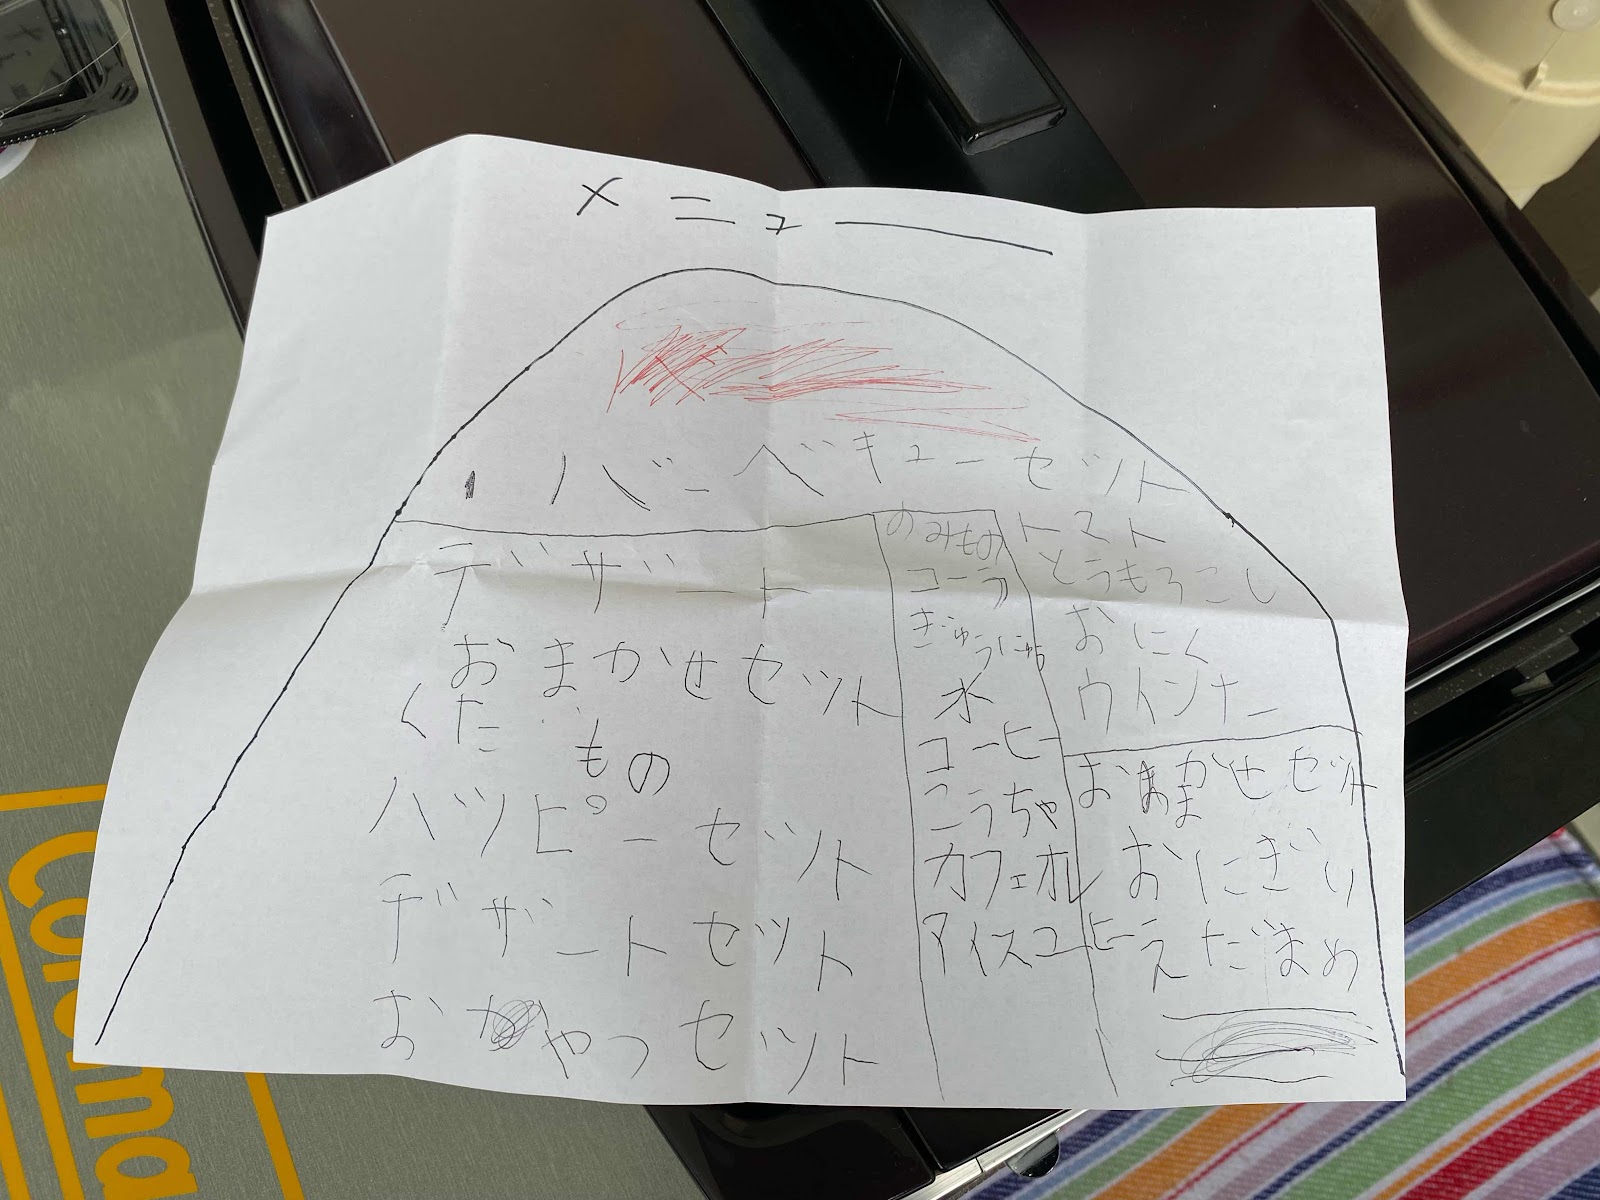 メニュー
バーベキューセット
トマト
とうもろこし
おにく
ウインナー
のみもの
コーラ
ぎゅうにゅう
水
コーヒー
こうちゃ
カフェオレ
アイスコーヒー
デザート
おまかせセット
くだもの
ハッピーセット
デザートセット
おやつセット
おまかせセット
おにぎり
えだまめ
Coleman